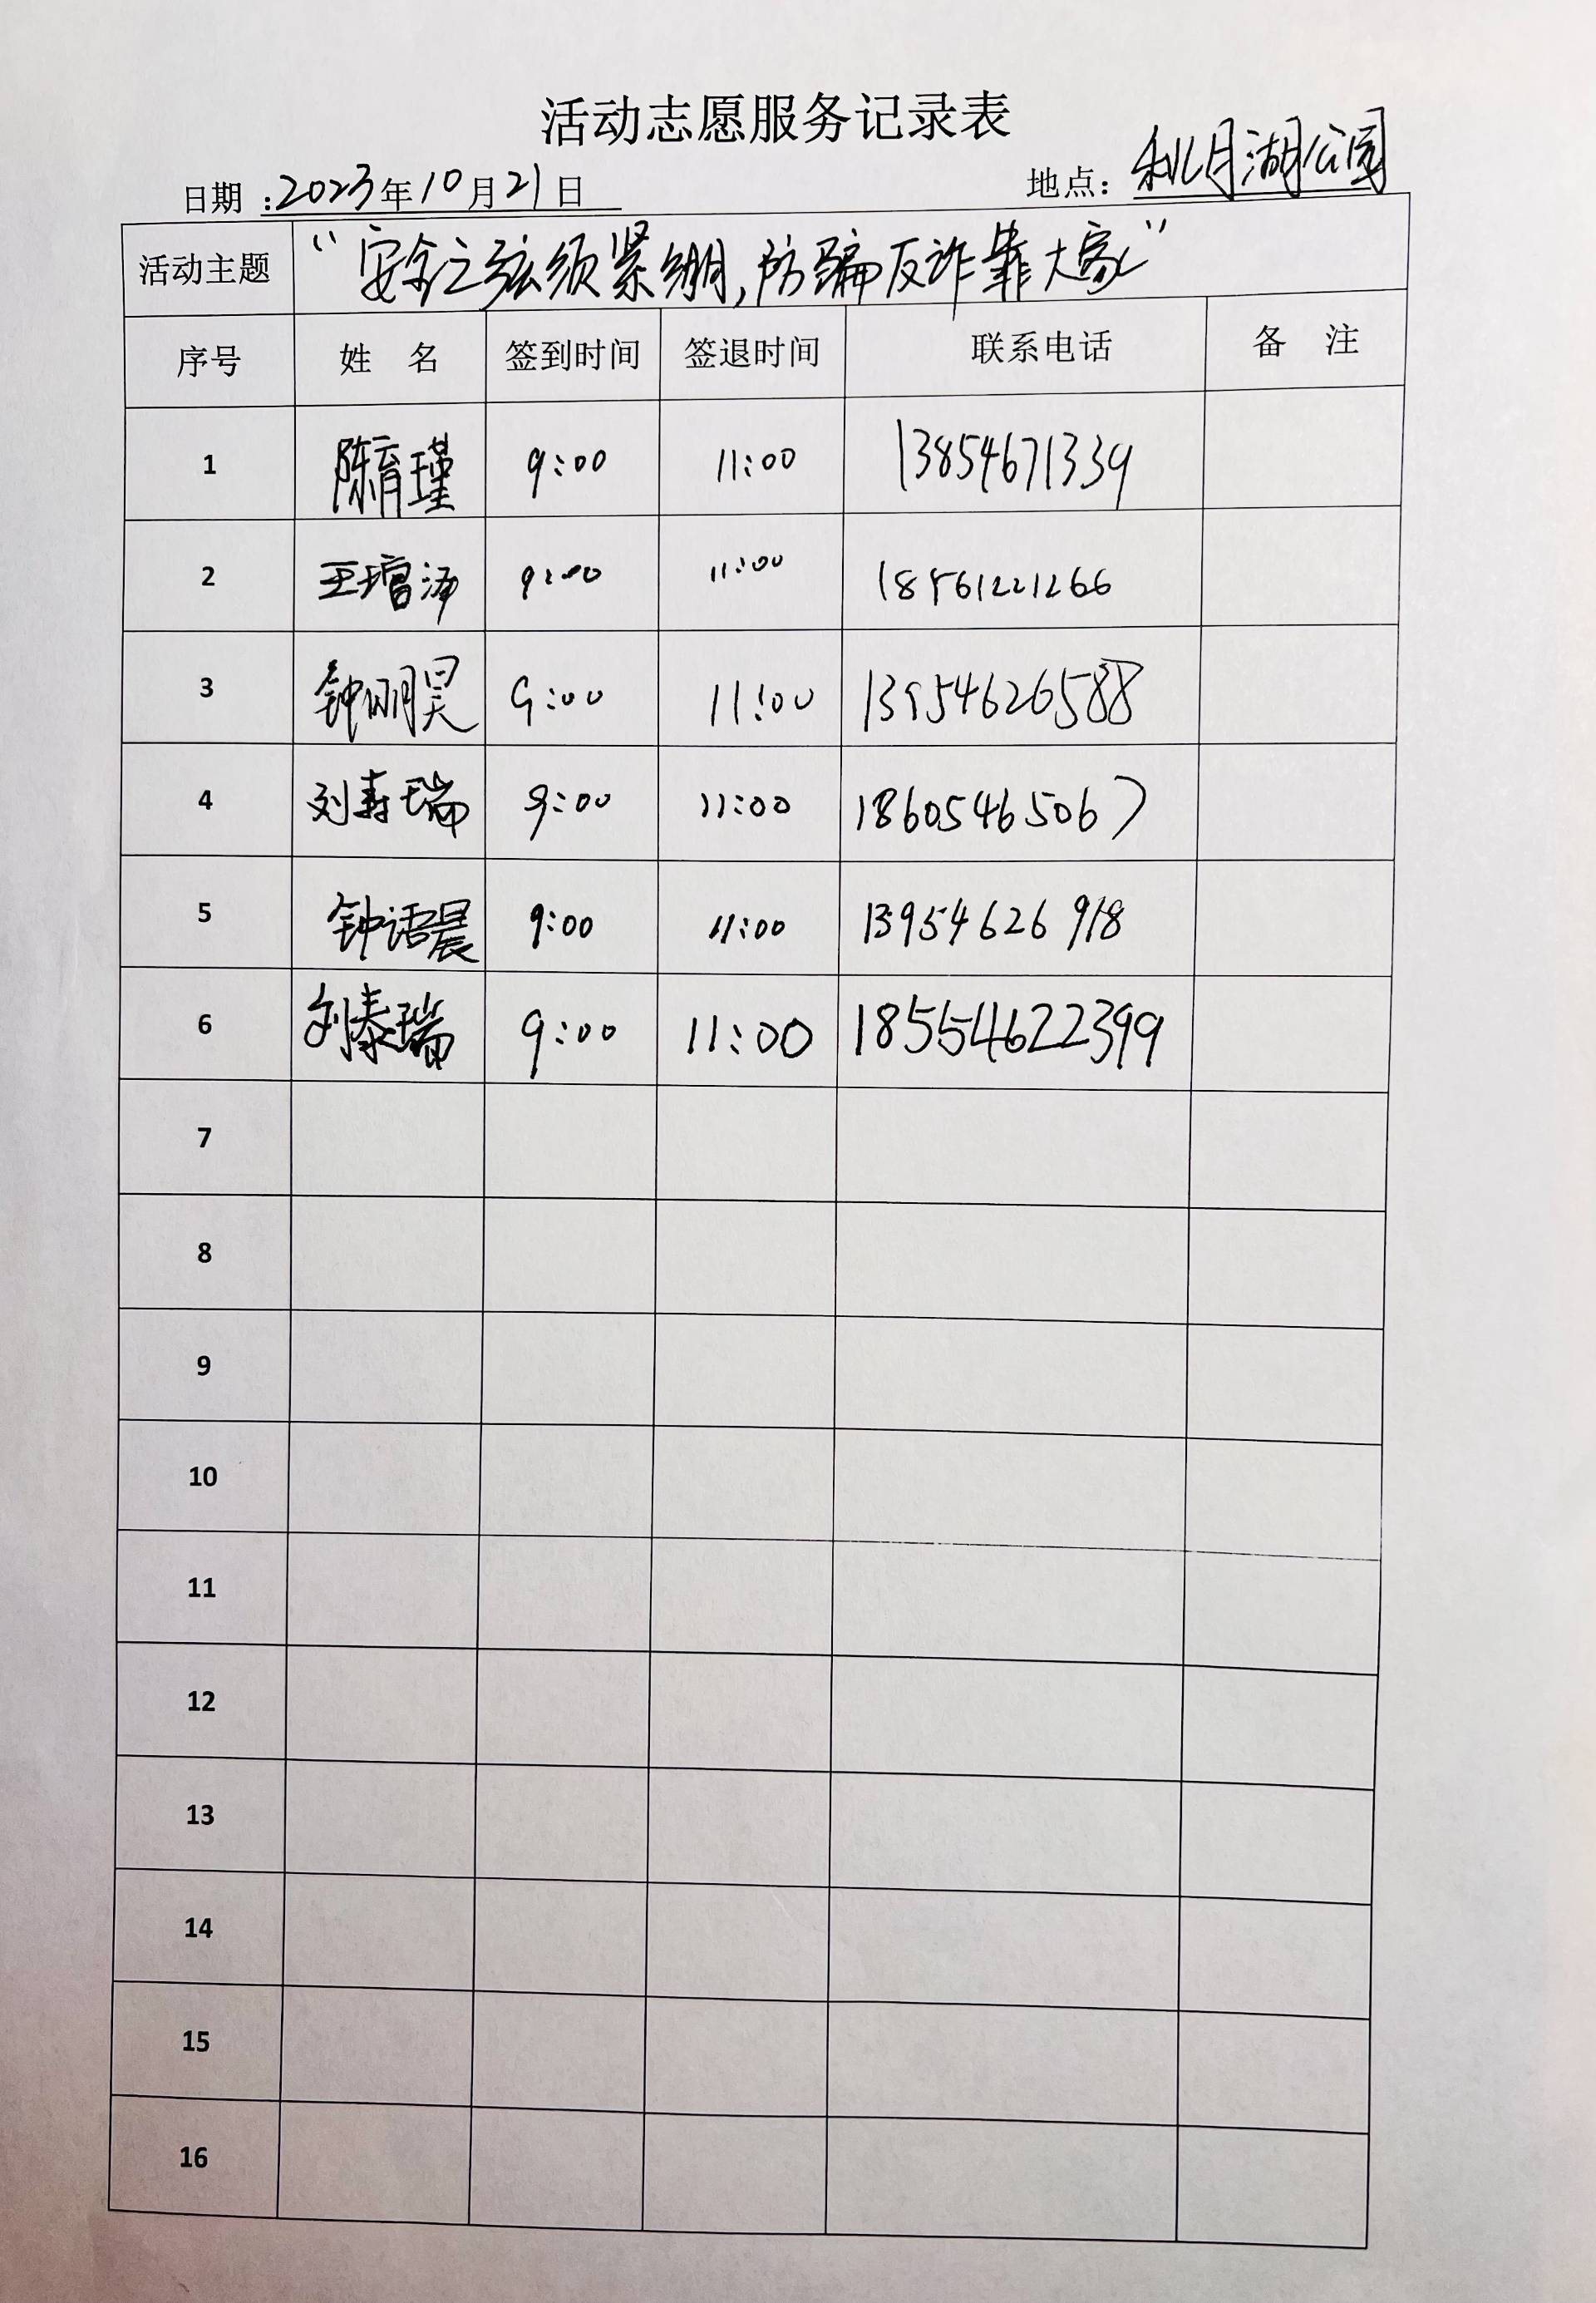 活动志愿服务记录表
日期：2023年10月21日 地点：月湖公园
活动主题 “安全之弦须紧绷,防骗反诈靠大家”
序号 姓 名 签到时间 签退时间 联系电话 备 注
1 陈育瑾 9:00 11:00 13854671339
2 王增泽 9:00 11:00 18561221266
3 钟明昊 9:00 11:00 13954626588
4 刘寿瑞 9:00 11:00 18605465067
5 钟语晨 9:00 11:00 13954626918
6 刘泰瑞 9:00 11:00 18554622399
7
8
9
10
11
12
13
14
15
16